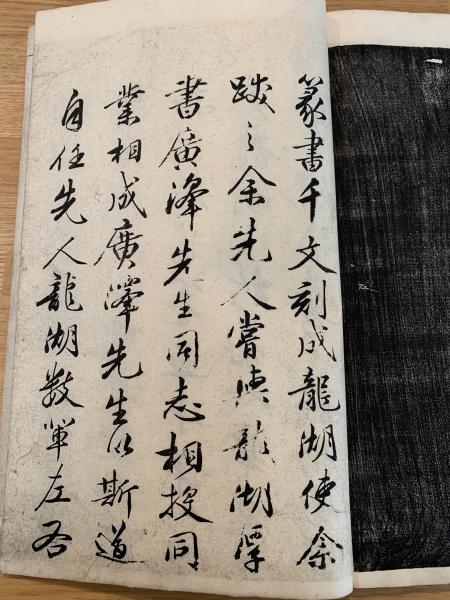 篆書千文刻成龍湖使余
跋之余先人嘗與龍湖學
書廣澤先生同志相投同
業相成廣澤先生以斯道
自任先人龍湖數輩左右